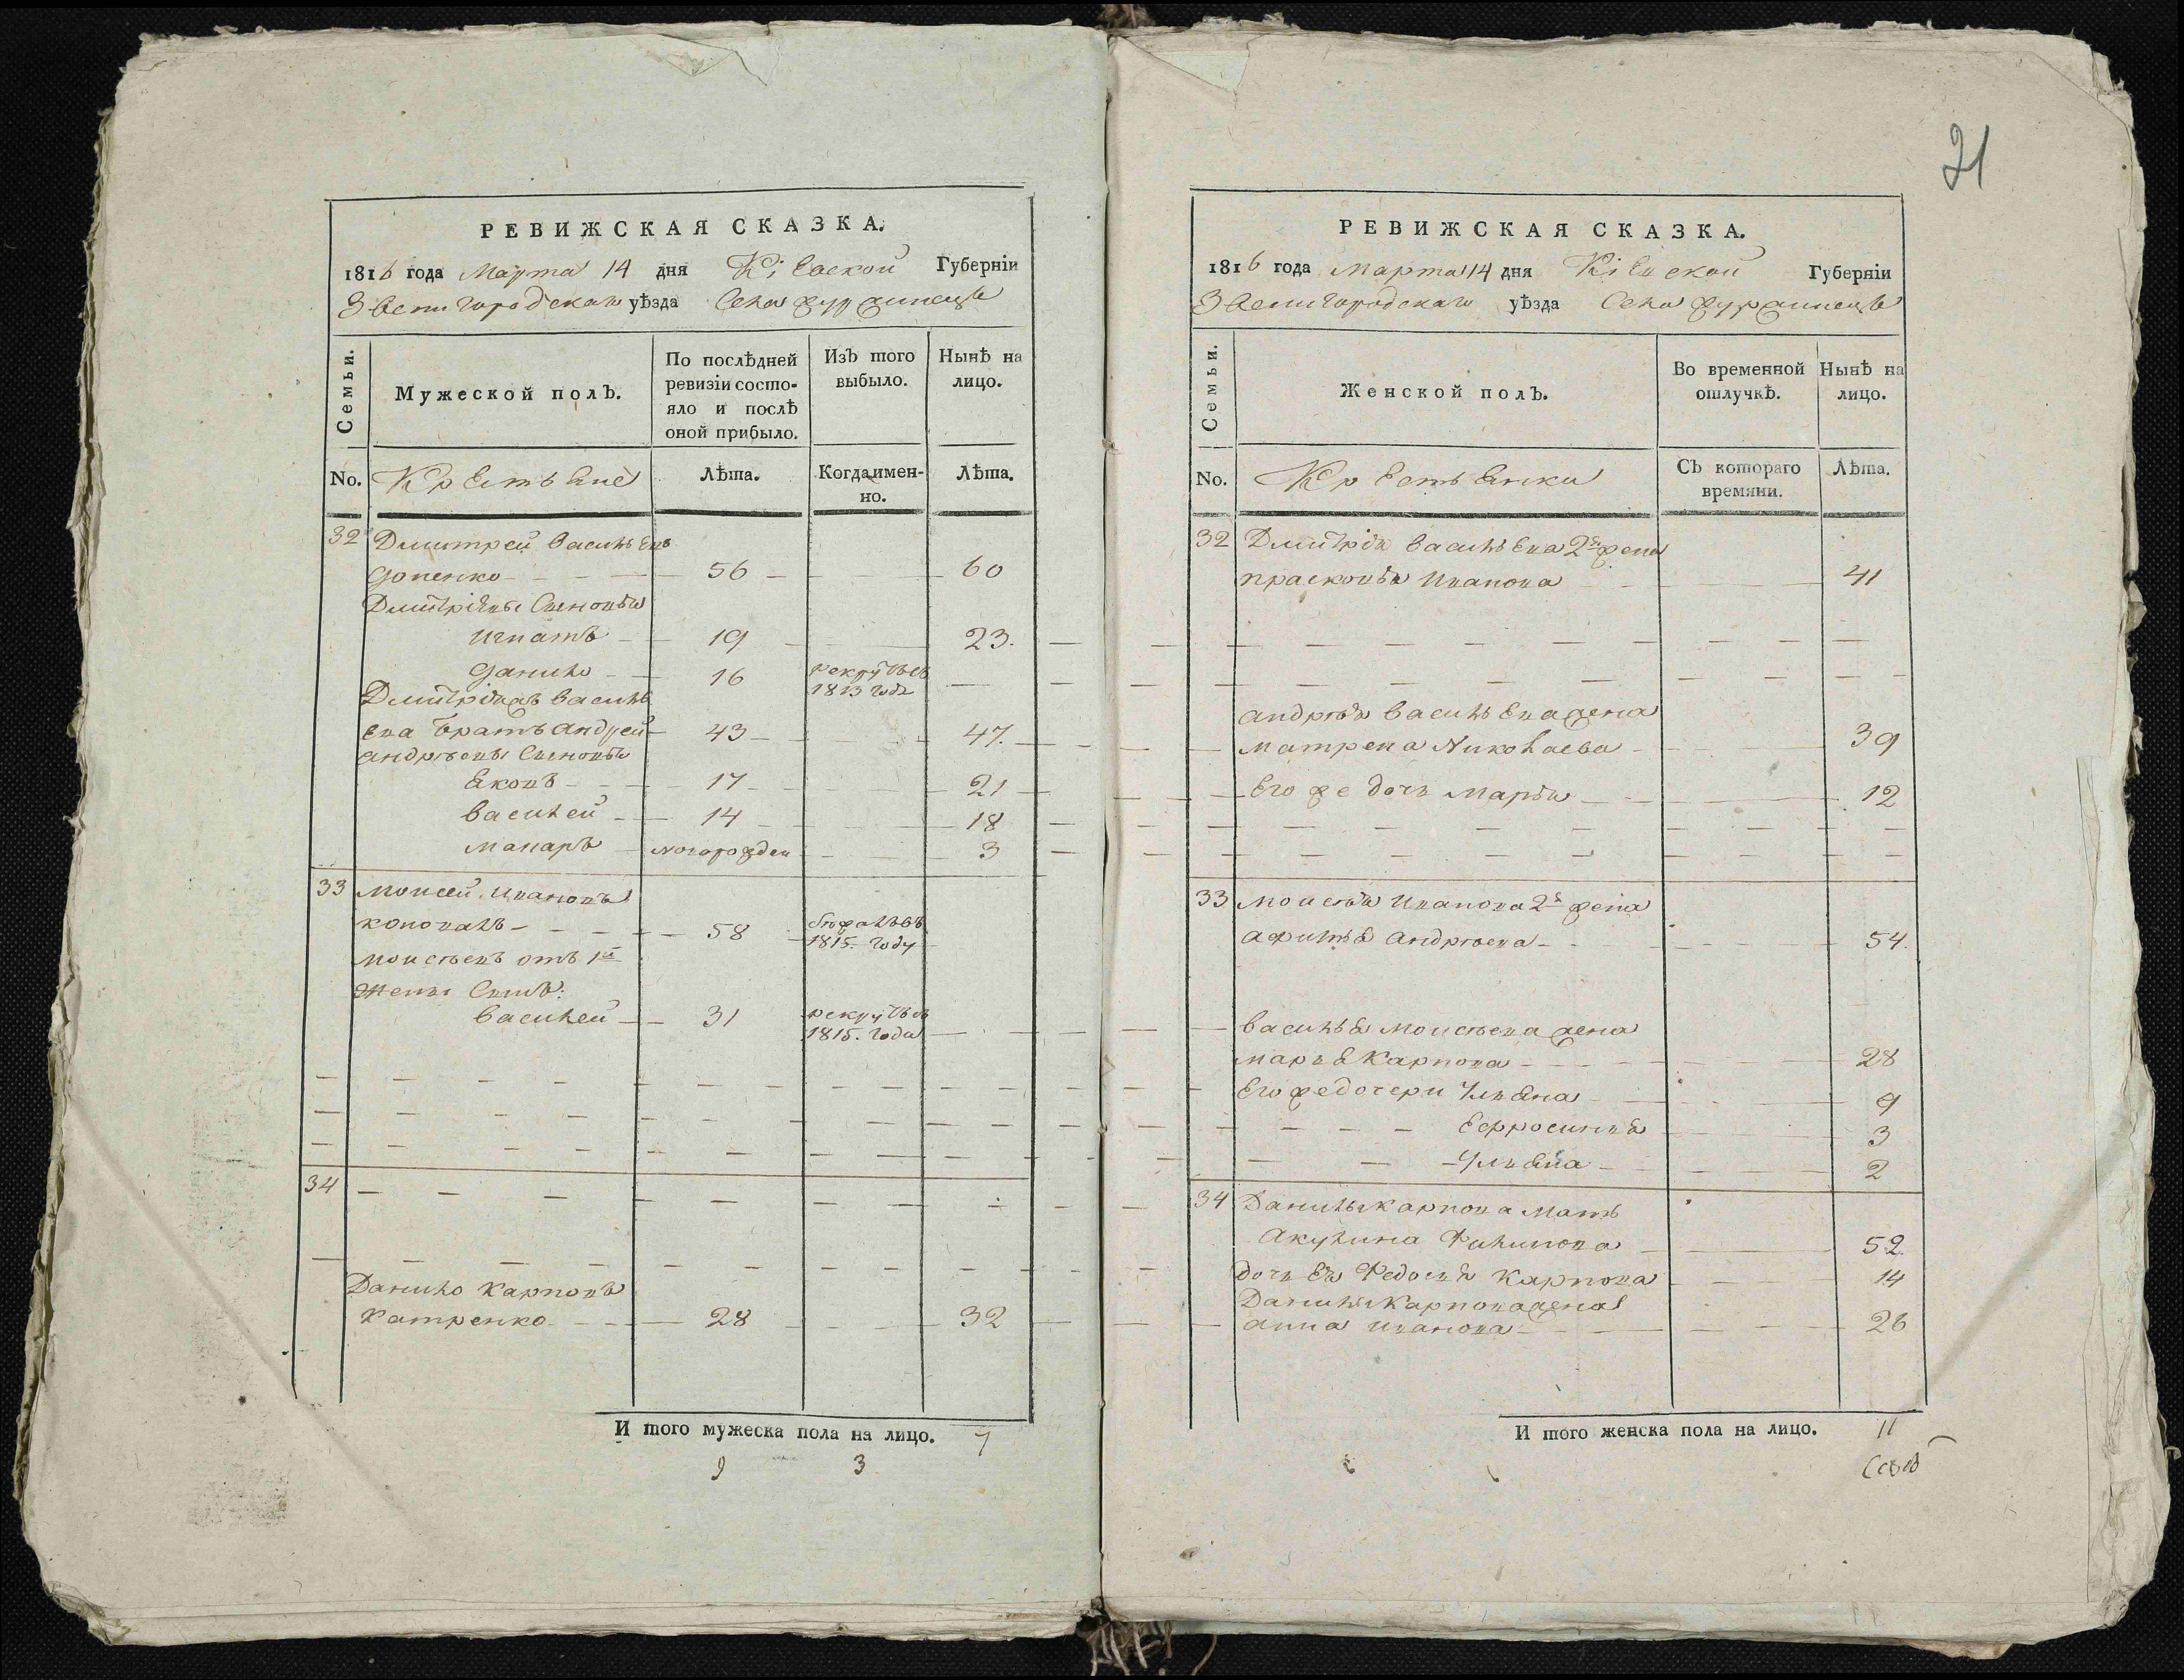 РЕВИЖСКАЯ СКАЗКА.
1816 года Марта 14 дня Кіевской Губерніи
Звенигородскаго уѣзда Села
Семьи.
Мужеской полъ.
По послѣдней ревизіи состо-
яло и послѣ
оной прибыло.
Изъ того
выбыло.
Нынѣ на
лицо.
No. Крестьяне
Лѣта.
Когда имен-
но.
Лѣта.
32 Дмитрей Васильевъ
56 60
Дмитріевы Сыновья
Игнатъ 19 23.
Данило 16 рекрутъ въ
1813 году
Дмитрія Василь
ева Братъ Андрей 43 47.
Андреевы Сыновья
Яковъ 17 21
Василей 14 18
Макаръ новорожден 3
33 Моисей Ивановъ
Коновалъ 58 бѣжалъ въ
1815. году
Моисеевъ отъ 1й
жены Сынъ:
Василей 31 рекрутъ въ
1815. года
34
Данило Карповъ
Катренко 28 32
И того мужеска пола на лицо. 7
9 3
21
РЕВИЖСКАЯ СКАЗКА.
1816 года Марта 14 дня Кіевской Губерніи
Звенигородскаго уѣзда Села
Семьи.
Женской полъ.
Во временной
отлучкѣ.
Нынѣ на
лицо.
No. Крестьянки
Съ котораго
времяни.
Лѣта.
32 Дмитрія Васильева 2я жена
Прасковья Иванова 41
Андрея Васильева жена
Матрена Николаева 39
Его же дочь Марья 12
33 Моисея Иванова 2я жена
Афимья Андреева 54.
Василья Моисеева жена
Марья Карпова 28
Его же дочери Ульяна 9
Ефросинья 3
Ульяна 2
34 Данилы Карпова Мать
Акулина Филипова 52.
дочь Ея Федосья Карпова 14
Данилы Карпова жена
Анна Иванова 26
И того женска пола на лицо. 11